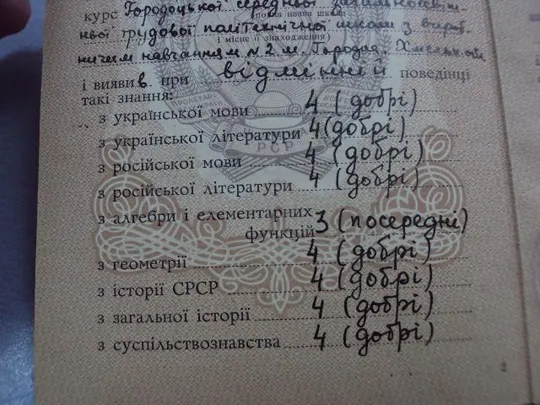 курс Городоцької середньої загальноосвіт-
(повна назва школи
ної трудової політехнічної школи з вироб-
і місце її знаходження)
ничим навчанням № 2 м. Городка, Хмельн. обл
і вияви в при відмінній поведінці
такі знання:
з української мови 4 (добрі)
з української літератури 4 (добрі)
з російської мови 4 (добрі)
з російської літератури 4 (добрі)
з алгебри і елементарних
функцій 3 (посередні)
з геометрії 4 (добрі)
з історії СРСР 4 (добрі)
з загальної історії 4 (добрі)
з суспільствознавства 4 (добрі)
РСР
2